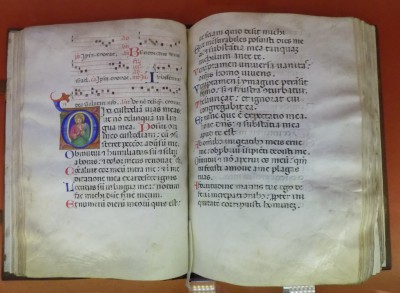 Dixi custodiam vias meas
ut non delinquam in lin
gua mea. Posui ori
meo custodiam: cum con
sisteret peccator adversum me
Obmutui & humiliatus sum & silui
a bonis: & dolor meus renovatus est
Concaluit cor meum intra me: & in me
ditatione mea exardescet ignis
Locutus sum in lingua mea: notum
fac michi domine finem meum
Et numerum dierum meorum quis est:
ut sciam quid desit michi
Ecce mensurabiles posuisti dies me
os: & substantia mea tanquam
nichilum ante te.
Verumtamen universa vanitas:
omnis homo vivens.
Verumtamen in ymagine pertransit
homo: sed & frustra conturbatur.
Thesaurizat: & ignorat cui
congregabit ea.
Et nunc que est expectatio mea
nonne dominus: & substantia mea
apud te est
Ab omnibus iniquitatibus meis erue
me: obprobrium insipienti dedisti me.
Obmutui & non aperui os meum: qm
tu fecisti amove a me plagas
tuas.
A fortitudine manus tue ego de
feci in increpationibus: propter ini
quitatem corripuisti hominem.